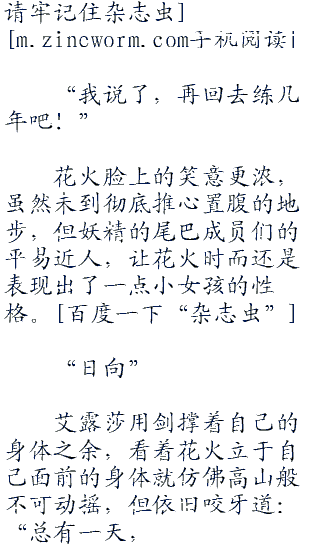 请牢记住杂志虫]
[m.zincworm.com手机阅读i
“我说了，再回去练几
年吧！”
花火脸上的笑意更浓，
虽然未到彻底推心置腹的地
步，但妖精的尾巴成员们的
平易近人，让花火时而还是
表现出了一点小女孩的性
格。[百度一下“杂志虫”]
“日向”
艾露莎用剑撑着自己的
身体之余，看着花火立于自
己面前的身体就仿佛高山般
不可动摇，但依旧咬牙道：
“总有一天，